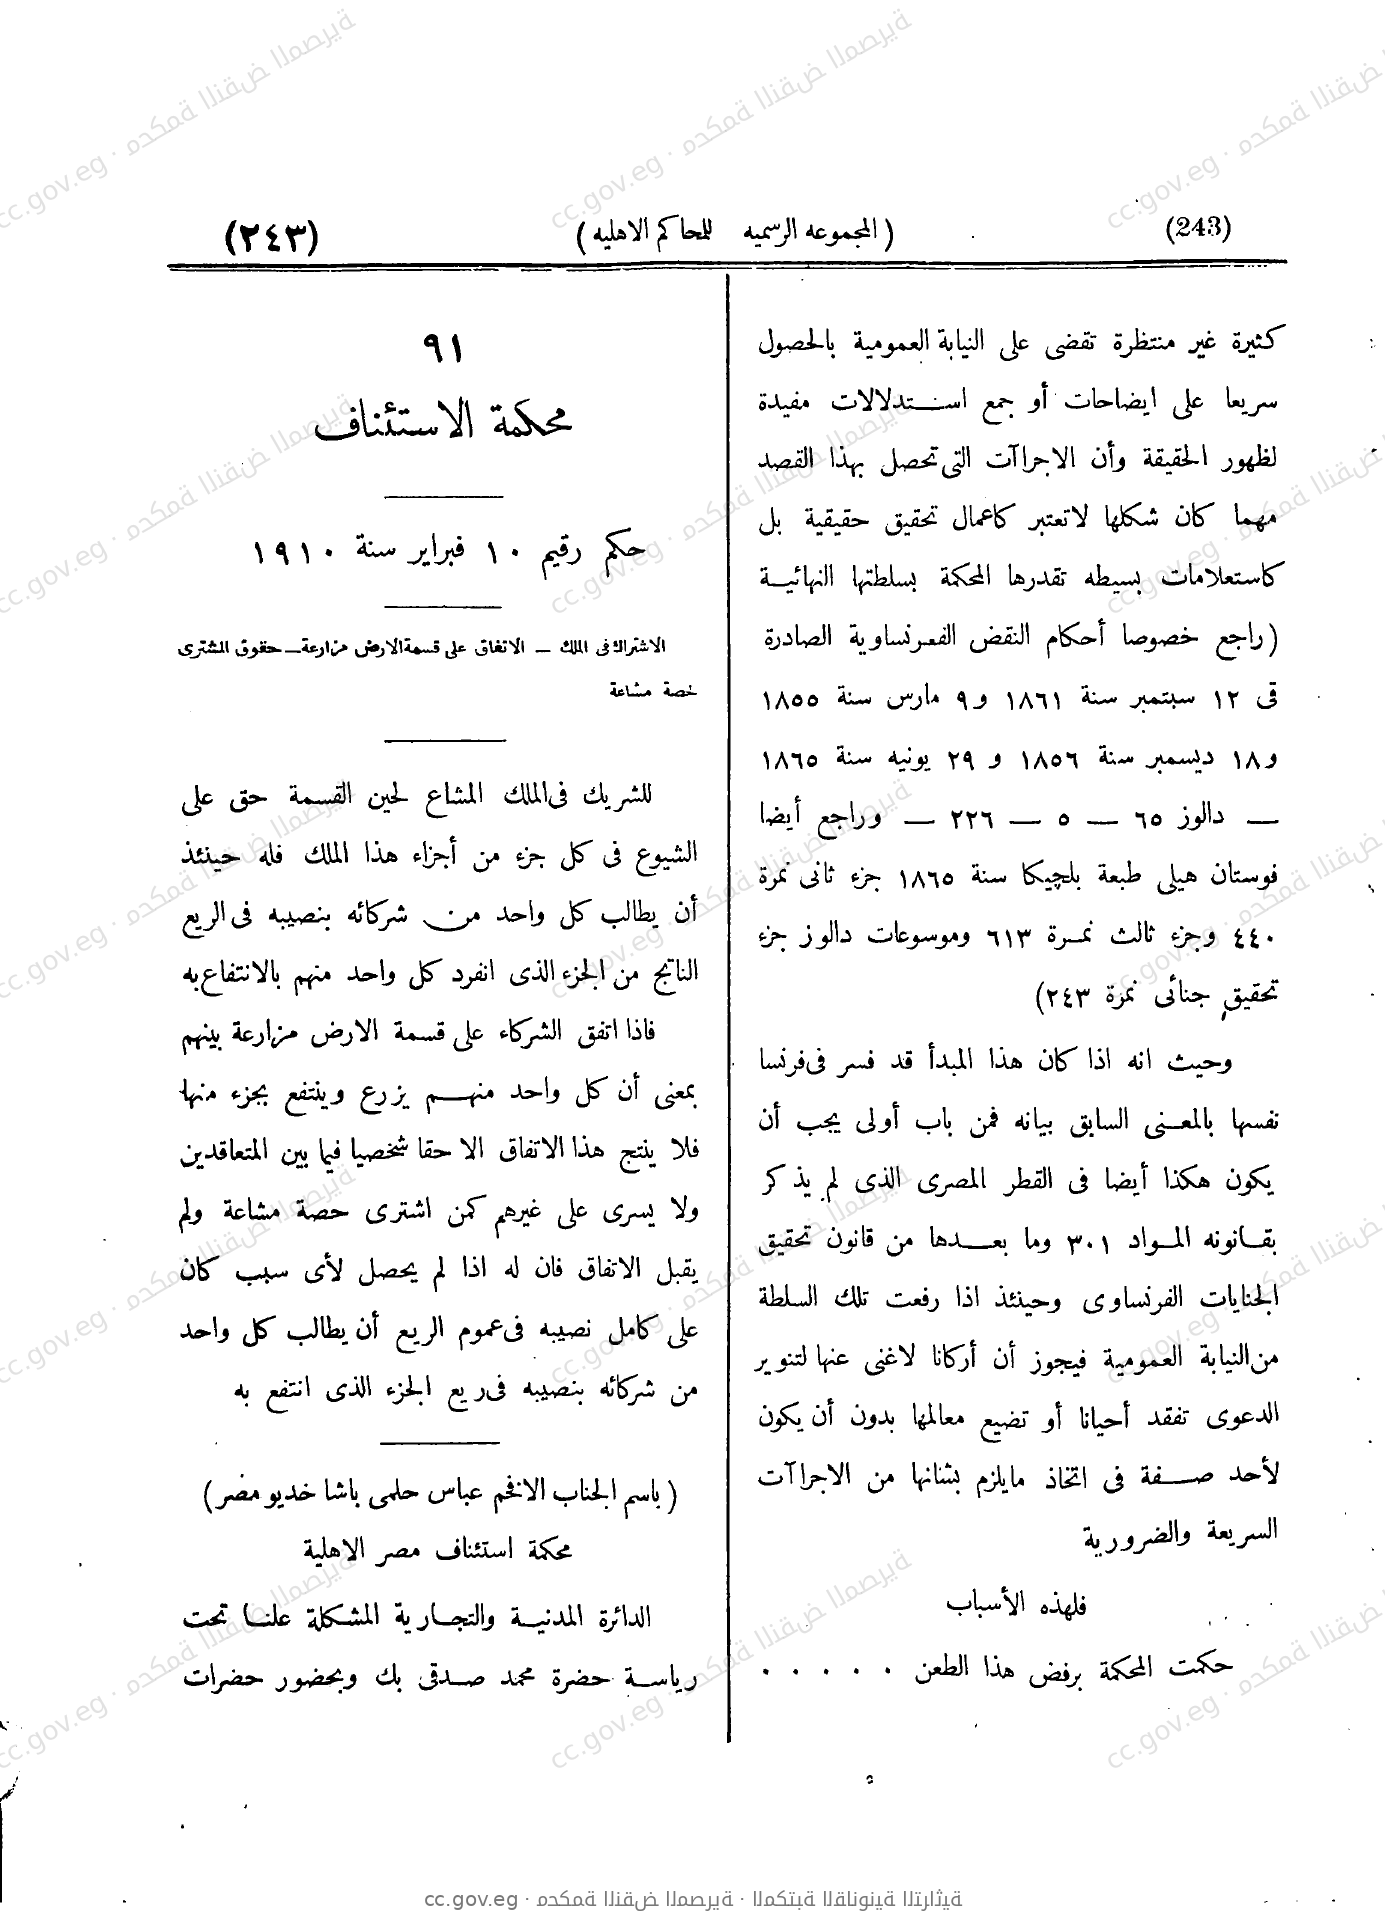 (243)
( المجموعه الرسميه للمحاكم الاهليه )
(٢٤٣)
كثيرة غير منتظرة تقضى على النيابة العمومية بالحصول
سريعا على ايضاحات أو جمع استدلالات مفيدة
لظهور الحقيقة وأن الاجراآت التى تحصل بهذا القصد
مهما كان شكلها لاتعتبر كاعمال تحقيق حقيقية بل
كاستعلامات بسيطه تقدرها المحكمة بسلطتها النهائية
(راجع خصوصا أحكام النقض الفرنساوية الصادرة
فى ١٢ سبتمبر سنة ١٨٦١ و٩ مارس سنة ١٨٥٥
و١٨ ديسمبر سنة ١٨٥٦ و ٢٩ يونيه سنة ١٨٦٥
— دالوز ٦٥ — ٥ — ٢٢٦ — وراجع أيضا
فوستان هيلى طبعة بلچيكا سنة ١٨٦٥ جزء ثانى نمرة
٤٤٠ وجزء ثالث نمرة ٦١٣ وموسوعات دالوز جزء
تحقيق جنائى نمرة ٢٤٣)
وحيث انه اذا كان هذا المبدأ قد فسر فى فرنسا
نفسها بالمعنى السابق بيانه فمن باب أولى يجب أن
يكون هكذا أيضا فى القطر المصرى الذى لم يذكر
بقانونه المواد ٣٠١ وما بعدها من قانون تحقيق
الجنايات الفرنساوى وحينئذ اذا رفعت تلك السلطة
من النيابة العمومية فيجوز أن أركانا لاغنى عنها لتنوير
الدعوى تفقد أحيانا أو تضيع معالمها بدون أن يكون
لأحد صفة فى اتخاذ مايلزم بشانها من الاجراآت
السريعة والضرورية
فلهذه الأسباب
حكمت المحكمة برفض هذا الطعن . . . . .
٩١
محكمة الاستئناف
حكم رقيم ١٠ فبراير سنة ١٩١٠
الاشتراك فى الملك — الاتفاق على قسمة الارض مزارعة — حقوق المشترى
لحصة مشاعة
للشريك فى الملك المشاع لحين القسمة حق على
الشيوع فى كل جزء من أجزاء هذا الملك فله حينئذ
أن يطالب كل واحد من شركائه بنصيبه فى الريع
الناتج من الجزء الذى انفرد كل واحد منهم بالانتفاع به
فاذا اتفق الشركاء على قسمة الارض مزارعة بينهم
بمعنى أن كل واحد منهم يزرع وينتفع بجزء منها
فلا ينتج هذا الاتفاق الا حقا شخصيا فيما بين المتعاقدين
ولا يسرى على غيرهم كمن اشترى حصة مشاعة ولم
يقبل الاتفاق فان له اذا لم يحصل لأى سبب كان
على كامل نصيبه فى عموم الريع أن يطالب كل واحد
من شركائه بنصيبه فى ريع الجزء الذى انتفع به
( باسم الجناب الافخم عباس حلمى باشا خديو مصر )
محكمة استئناف مصر الاهلية
الدائرة المدنية والتجارية المشكلة علنا تحت
رياسة حضرة محمد صدقى بك وبحضور حضرات
cc.gov.eg · محكمة النقض المصرية · المكتبة القانونية التراثية